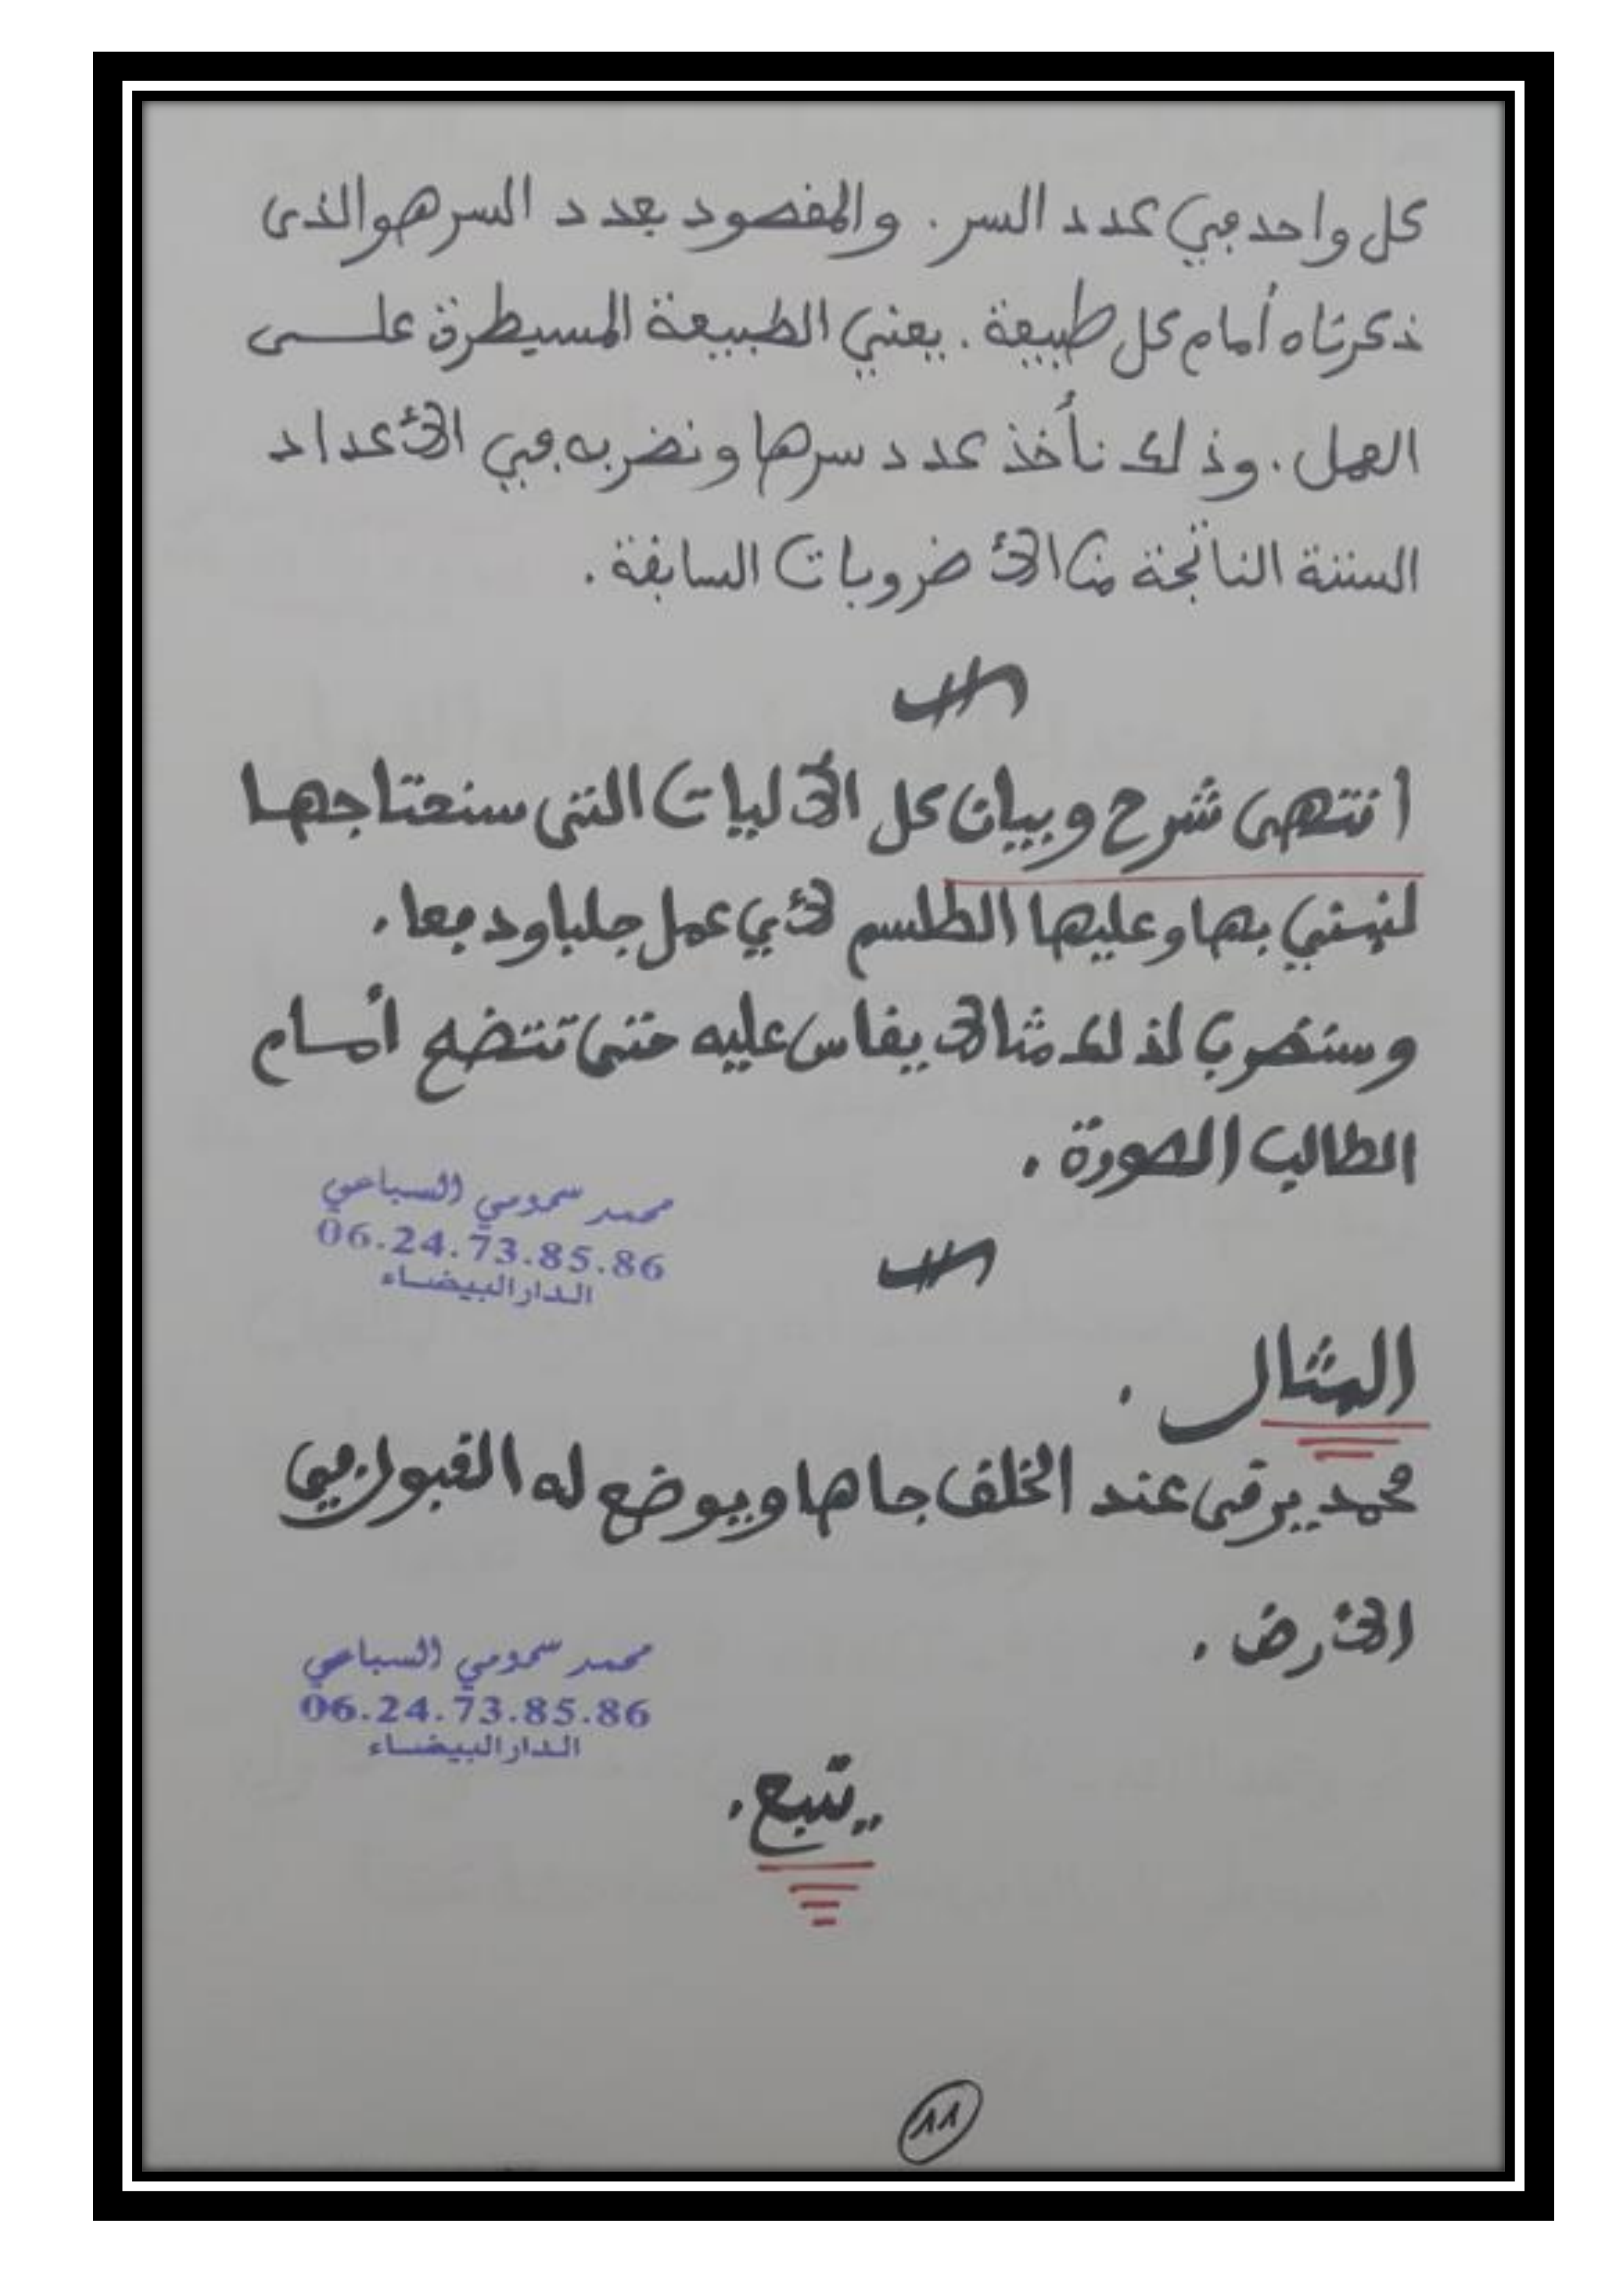 كل واحد في عدد السر. والمقصود بعدد السر هو الذى
ذكرناه أمام كل طبيعة. يعني الطبيعة المسيطرة على
العمل. وذلك نأخذ عدد سرها ونضربه في الأعداد
الستة الناتجة من الأضروبات السابقة.
انتهى شرح وبيان كل الآليات التى سنحتاجها
لنبني بها وعليها الطلسم لأي عمل جلبا ودفعا.
وسنضرب لذلك مثالا يقاس عليه حتى تتضح أمام
الطالب الصورة.
محمد سمومي السباعي
06.24.73.85.86
الدار البيضاء
المثال.
محمد يرقى عند الخلق جاها ويوضع له القبول في
الأرض.
محمد سمومي السباعي
06.24.73.85.86
الدار البيضاء
يتبع.
11